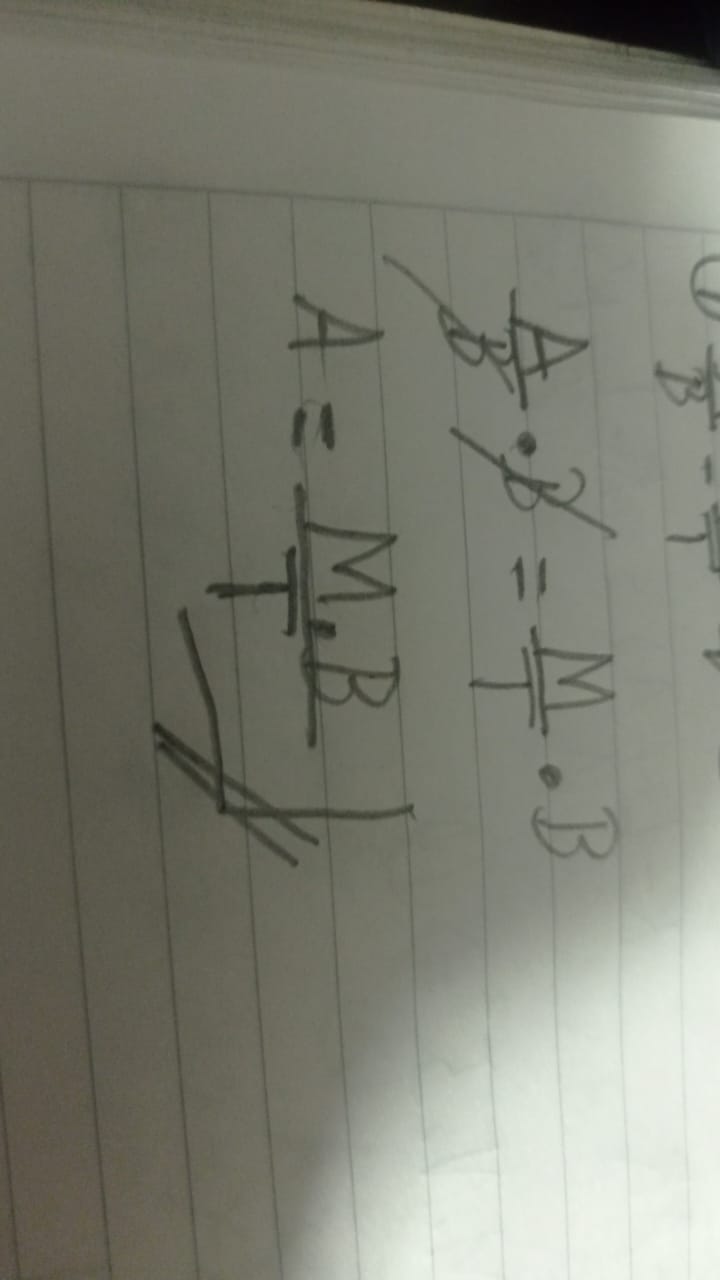 ① B = T
A/B · B = M/T · B
A = M.B/T